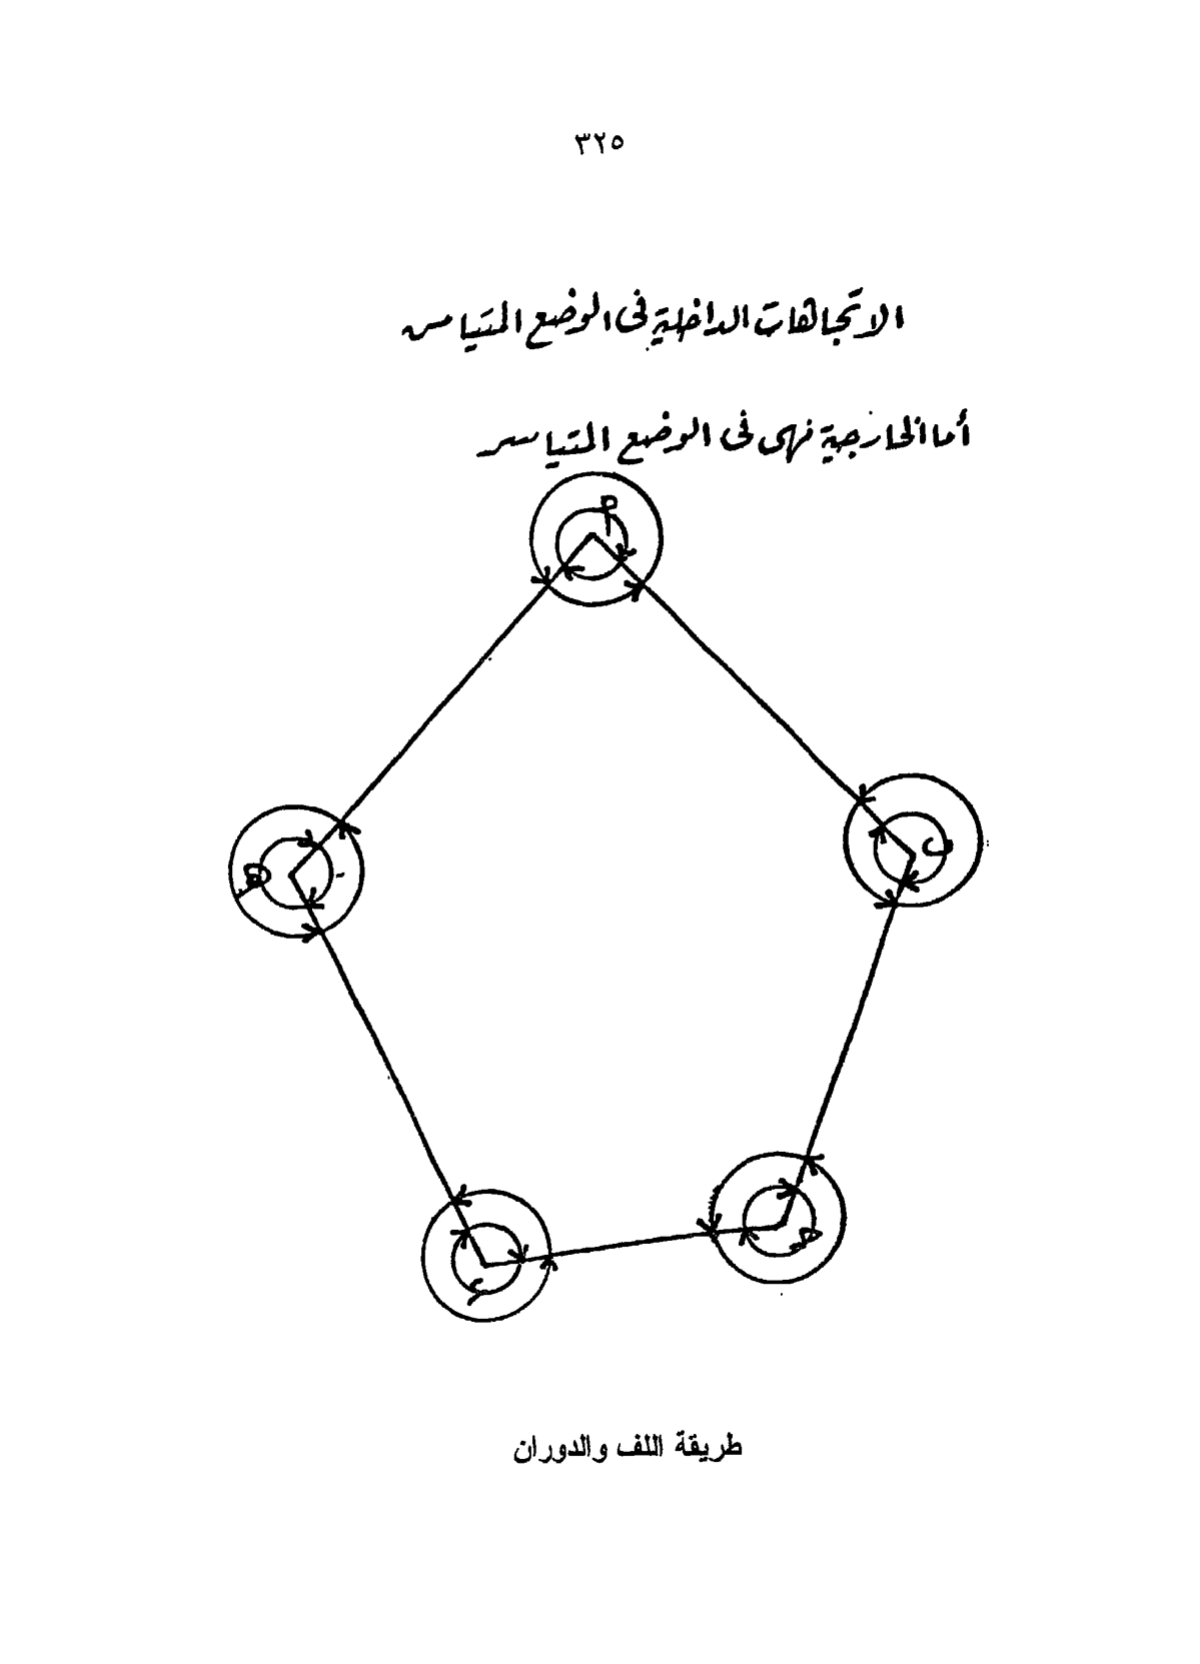 ٣٢٥
الاتجاهات الداخلية فى الوضع المتيامن
أما الخارجية فهى فى الوضع المتياسر
م
ب
هـ
د
طريقة اللف والدوران